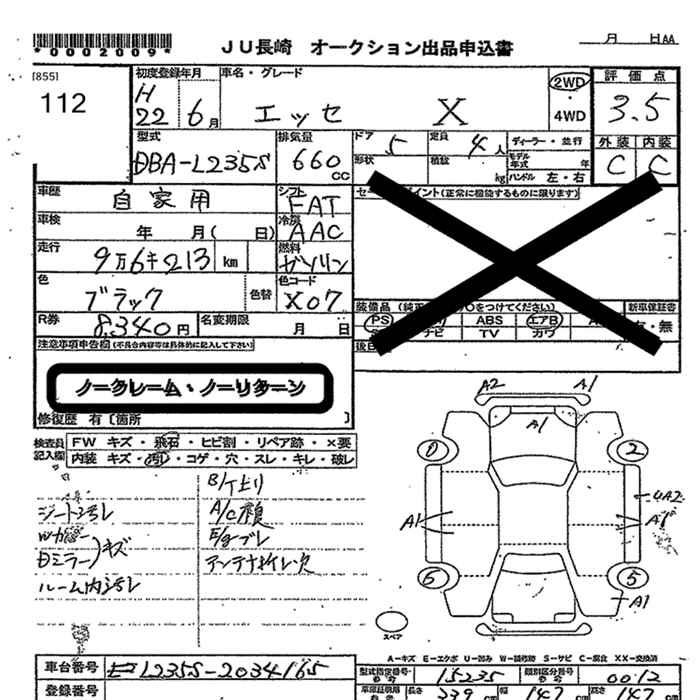 *0002009*
JU長崎 オークション出品申込書
月 日AA
[855]
112
初度登録年月
H
22 6月
車名・グレード
エッセ X
2WD
・
4WD
評価点
3.5
型式
DBA-L235S
排気量
660
CC
ドア
5
定員
4人
ディーラー・並行
形状
積載
kg
モデル年式
年
ハンドル 左・右
外装 内装
C C
車歴
自家用
シフト
FAT
車検
年 月( 日)
冷房
AAC
走行
9万6千213 km
燃料
ガソリン
色
ブラック
色替
色コード
X07
R券
8,340円
名変期限
月 日
装備品
新車保証書
・無
PS
ABS
エアB
ナビ
TV
カワ
注意事項申告欄(不具合内容等は具体的に記入して下さい)
ノークレーム・ノーリターン
修復歴 有〔箇所 〕
検査員記入欄
FW キズ・飛石・ヒビ割・リペア跡・×要
内装 キズ・汚レ・コゲ・穴・スレ・キレ・破レ
シート汚レ
Dミラー
キズ
ルーム内汚レ
A/C臭
アンテナ折レ欠
A2 A1
A1
2
4A2
A1
A1
5
A1
スペア
A-キズ E-エクボ U-凹み W-補修跡 S-サビ C-腐食 XX-交換済
車台番号
L235S-2034165
登録番号
型式指定番号
15235
類別区分番号
0012
長さ
339
幅
147
高さ
147